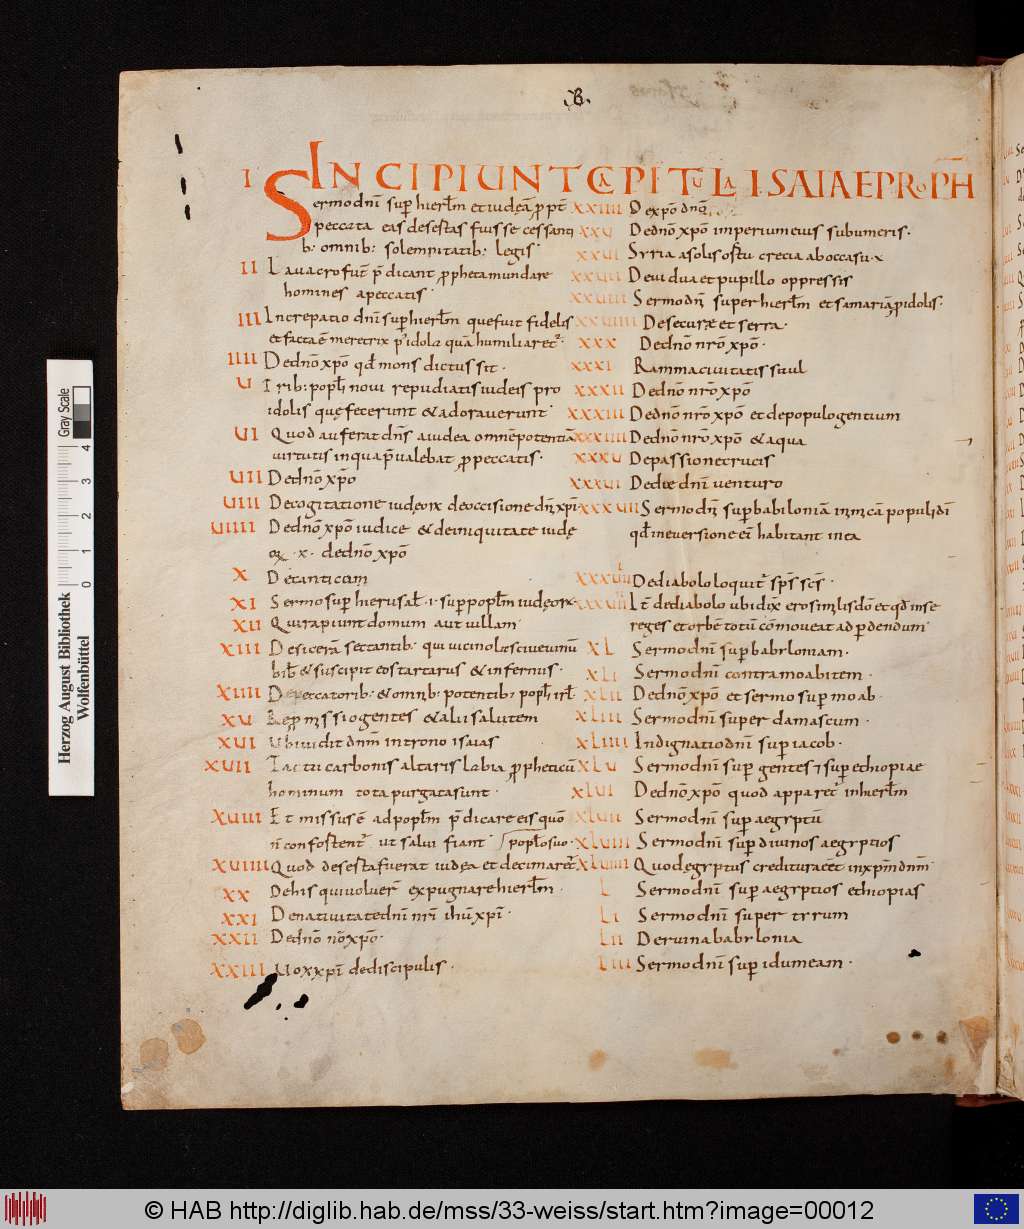 .B.
INCIPIUNT CAPITULA ISAIAE PROPH
I Sermo dnī sup hierłm et iudęā p pc̄
peccata eas desertas fuisse cessanti
b: omnib: solempnitatib: legis
II Lauacro fuī p̄dicant ppheta mundare
homines a peccatis
III Increpatio dnī sup hierłm que fuit fidelis
et facta ē meretrix p idola quā humiliaret
IIII De dnō xpō qđ mons dictus sit.
V Trib: popłi noui repudiatis iudeis pro
idolis quę fecerunt & adorauerunt
VI Quod auferat dns̄ a iudea omnē potentiā
uirtutis in qua p̄ualebat p peccatis.
VII De dnō xpō
VIII De cogitatione iudęorx de occisione dn̄i xpī
VIIII De dnō xpō iudice & de iniquitate iudę
orx. .x. de dnō xpō
X De canticum
XI Sermo sup hierusał .i. sup popłm iudęorx
XII Qui rapiunt domum aut uillam
XIII De sicerā sectantib: qui uicino
bib & & suscipit eos tartarus & infernus.
XIIII De peccatorib: & omīb: potentib: popłi irł
XV Repmissio gentes & alii salutem
XVI Ubi uidit dnm̄ in trono isaias
XVII Tactu carbonis altaris labia ppheticū
hominum tota purgata sunt.
XVIII Et missus ē ad popłm p̄dicare eis quō
n̄ confostent ut salui fiant popło suo
XVIIII Quod deserta fuerat iudea et decimaret
XX De his qui uoluer̄ expugnare hierłm.
XXI De natiuitate dnī nrī ihū xpī.
XXII De dnō nō xpō.
XXIII Uox xpī de discipulis.
XXIIII De xpō dn̄
XXV De dnō xpō imperium eius sub umeris.
XXVI Syria a solis ostu crecia ab occasu.x
XXVII De uidua et pupillo oppressis
XXVIII Sermo dn̄i super hierłm et samariā p idolis.
XXVIIII De secure et serra.
XXX De dnō nrō xpō.
XXXI Ramma ciuitatis saul
XXXII De dnō nrō xpō
XXXIII De dnō nrō xpō et de populo gentium
XXXIIII De dnō nrō xpō & aqua
XXXV De passione crucis
XXXVI De die dnī venturo
XXXVII Sermo dn̄i sup babiloniā inimicā populi dī
qđ in euersione eī habitant in ea
XXXVIII De diabolo loquit sps̄ scs̄.
XXXVIIII It̄ de diabolo ubi dix ero similis dō et qđ inse
reges et orbē totū cōmoueat ad pdendum
XL Sermo dnī sup babyloniam.
XLI Sermo dnī contra moabitem.
XLII De dnō xpō et sermo sup moab.
XLIII Sermo dnī super damascum.
XLIIII Indignatio dnī sup iacob.
XLV Sermo dnī sup gentes 7 sup ethiopiae
XLVI De dnō xpō quod apparet in hierłm
XLVII Sermo dnī sup aegyptū
XLVIII Sermo dnī sup diuinos aegyptios
XLVIIII Quod ęgyptus creditura eēt in xpm̄ dnm̄
L Sermo dnī sup aegyptios ethiopias
LI Sermo dnī super tyrum
LII De ruina babylonia
LIII Sermo dnī sup idumeam.
Herzog August Bibliothek
Wolfenbüttel
Gray Scale
0 1 2 3 4
© HAB http://diglib.hab.de/mss/33-weiss/start.htm?image=00012